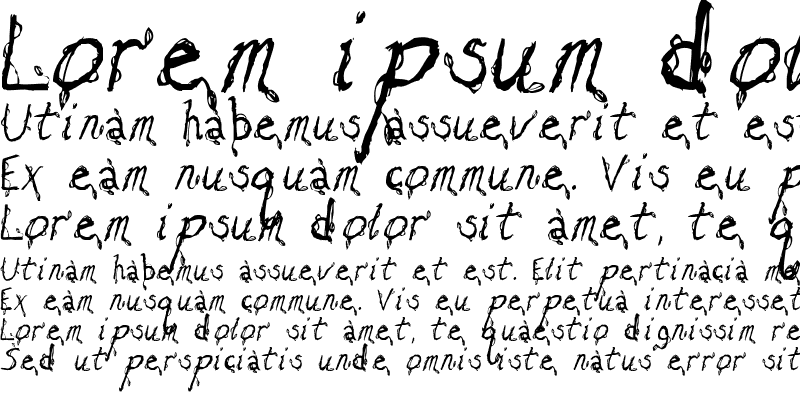 Lorem ipsum dolo
Utinam habemus assueverit et es
Ex eam nusquam commune. Vis eu p
Lorem ipsum dolor sit amet, te q
Utinam habemus assueverit et est. Elit pertinacia me
Ex eam nusquam commune. Vis eu perpetua interesset
Lorem ipsum dolor sit amet, te quaestio dignissim re
Sed ut perspiciatis unde omnis iste natus error sit